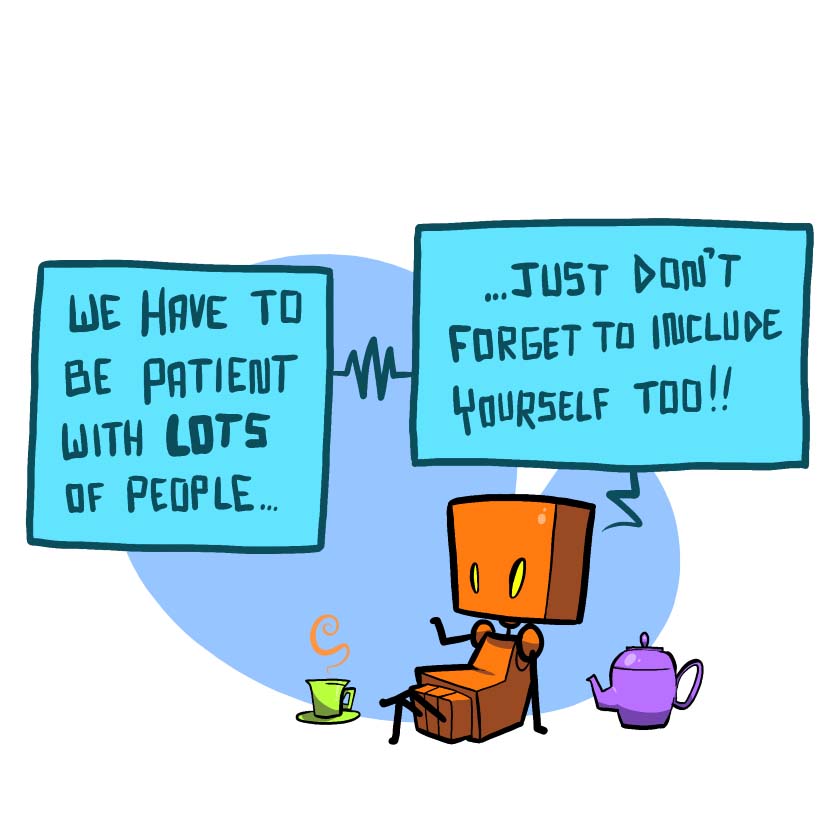 WE HAVE TO
BE PATIENT
WITH LOTS
OF PEOPLE...
...JUST DON'T
FORGET TO INCLUDE
YOURSELF TOO!!